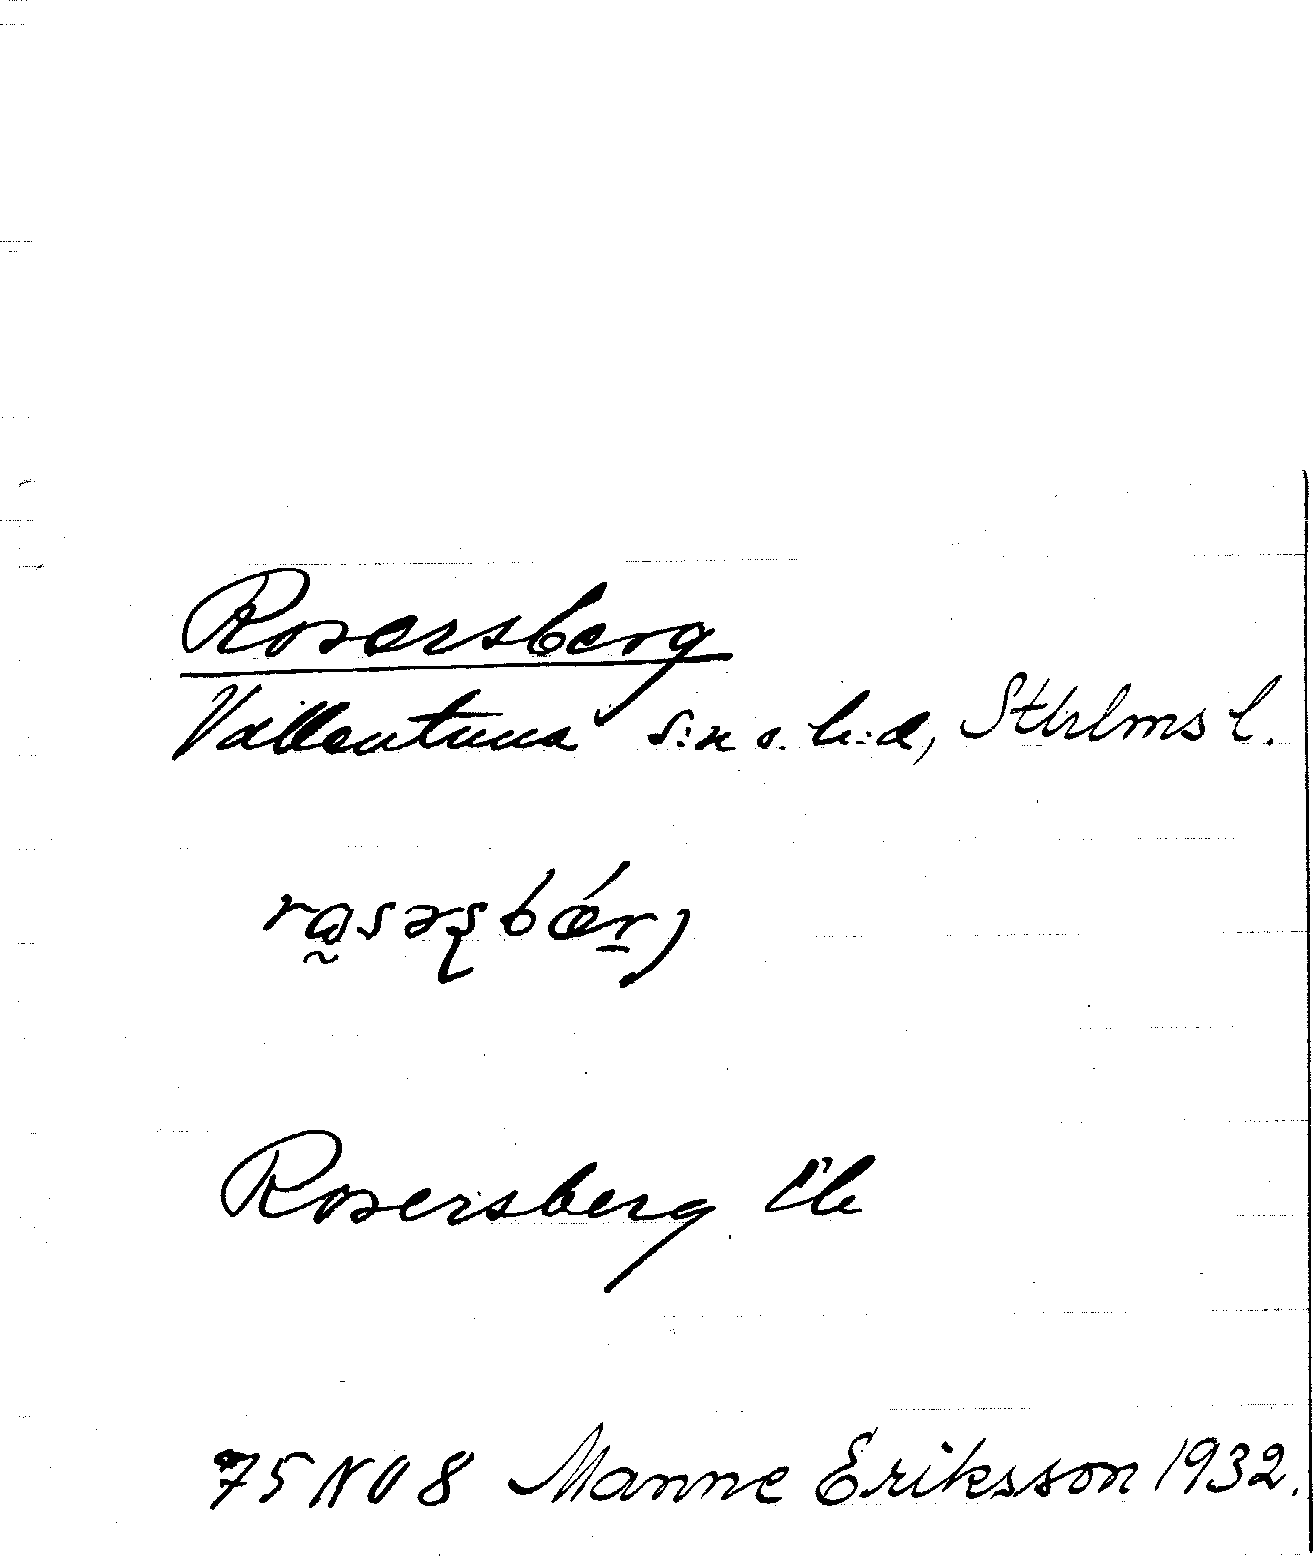 Rosersberg
Vallentuna s:n o. h:d, Sthlms l.
Rosersberg
75 NO 8 Manne Eriksson 1932.